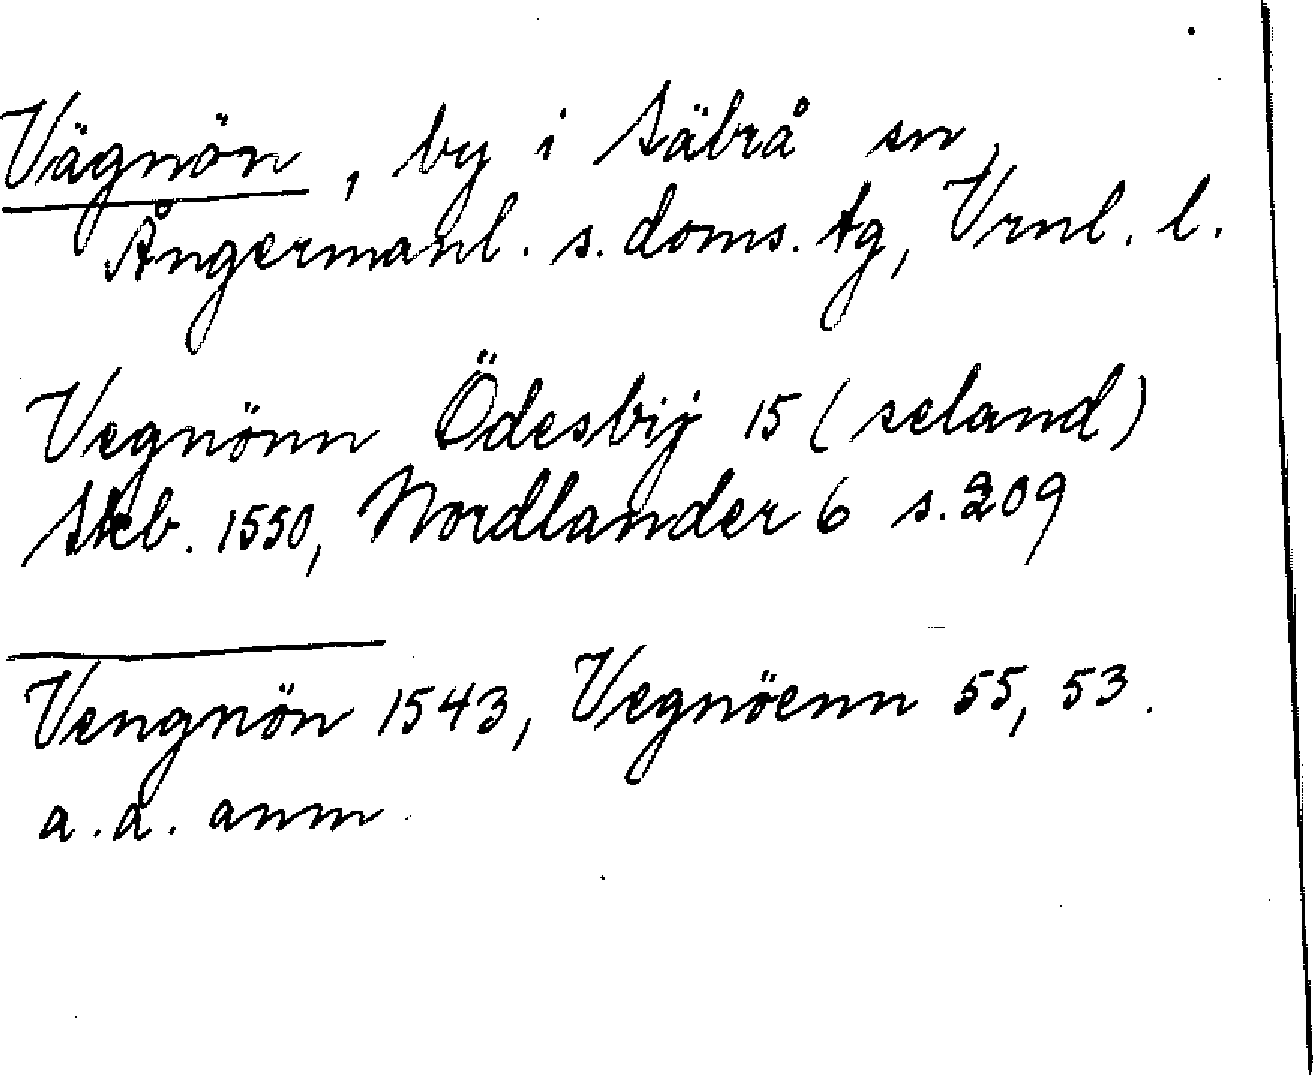 Vägnön, by i Säbrå sn,
Ångermanl. s. doms. tg, Vrnl. l.
Vegnönn Ödesbij 15 (seland)
Skb. 1550, Nordlander 6 s. 209
Vengnön 1543, Vegnöenn 55, 53.
a. a. anm